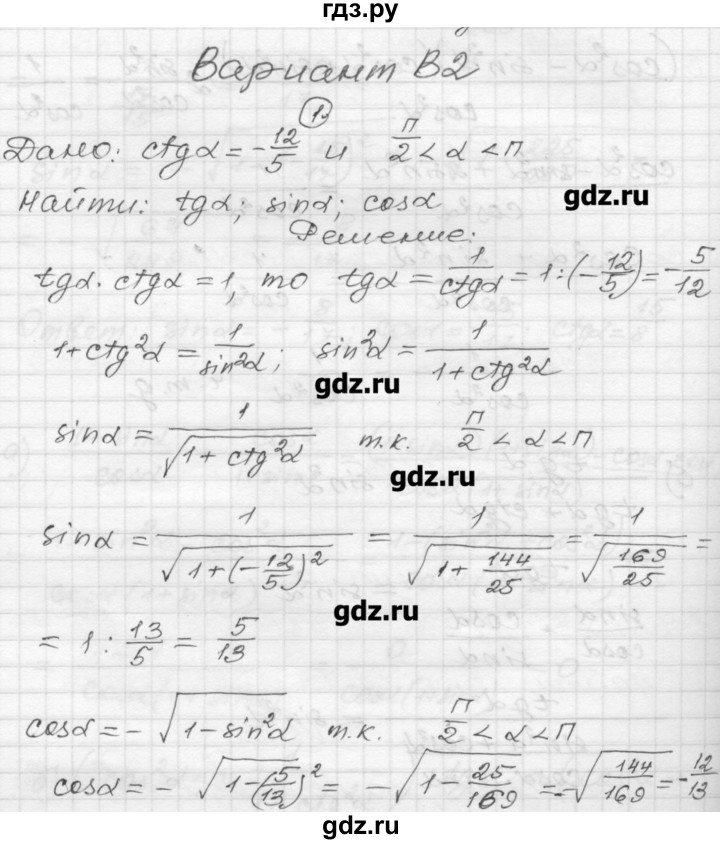 гдз.ру
Вариант В2
1.
Дано: ctgα = -12/5 и П/2 < α < П
gdz.ru
Найти: tgα; sinα; cosα
Решение:
tgα · ctgα = 1, то tgα = 1/ctgα = 1 : (-12/5) = -5/12
1 + ctg²α = 1/sin²α; sin²α = 1/(1 + ctg²α)
gdz.ru
sinα = 1/√(1 + ctg²α) т.к. П/2 < α < П
gdz.ru
sinα = 1/√(1 + (-12/5)²) = 1/√(1 + 144/25) = 1/√(169/25) =
gdz.ru
= 1 : 13/5 = 5/13
cosα = -√(1 - sin²α) т.к. П/2 < α < П
cosα = -√(1 - (5/13)²) = -√(1 - 25/169) = -√(144/169) = -12/13
gdz.ru